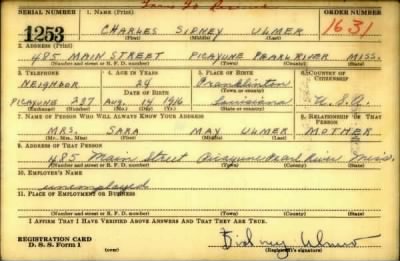 SERIAL NUMBER 1. NAME (Print) ORDER NUMBER
1253 CHARLES SIDNEY ULMER 1631
(First) (Middle) (Last)
2. ADDRESS (Print)
485 MAIN STREET PICAYUNE PEARL RIVER MISS.
(Number and street or R. F. D. number) (Town) (County) (State)
3. TELEPHONE 4. AGE IN YEARS 5. PLACE OF BIRTH 6. COUNTRY OF CITIZENSHIP
NEIGHBOR 24 Franklinton
DATE OF BIRTH (Town or county)
PICAYUNE 227 Aug. 14 1916 Louisiana U.S.A.
(Exchange) (Number) (Mo.) (Day) (Yr.) (State or country)
7. NAME OF PERSON WHO WILL ALWAYS KNOW YOUR ADDRESS 8. RELATIONSHIP OF THAT PERSON
MRS. SARA MAY ULMER MOTHER
(Mr., Mrs., Miss) (First) (Middle) (Last)
9. ADDRESS OF THAT PERSON
485 Main Street Picayune Pearl River Miss.
(Number and street or R. F. D. number) (Town) (County) (State)
10. EMPLOYER'S NAME
unemployed
11. PLACE OF EMPLOYMENT OR BUSINESS
(Number and street or R. F. D. number) (Town) (County) (State)
I AFFIRM THAT I HAVE VERIFIED ABOVE ANSWERS AND THAT THEY ARE TRUE.
REGISTRATION CARD
D. S. S. Form 1 (over) Sidney Ulmer
(Registrant's signature)